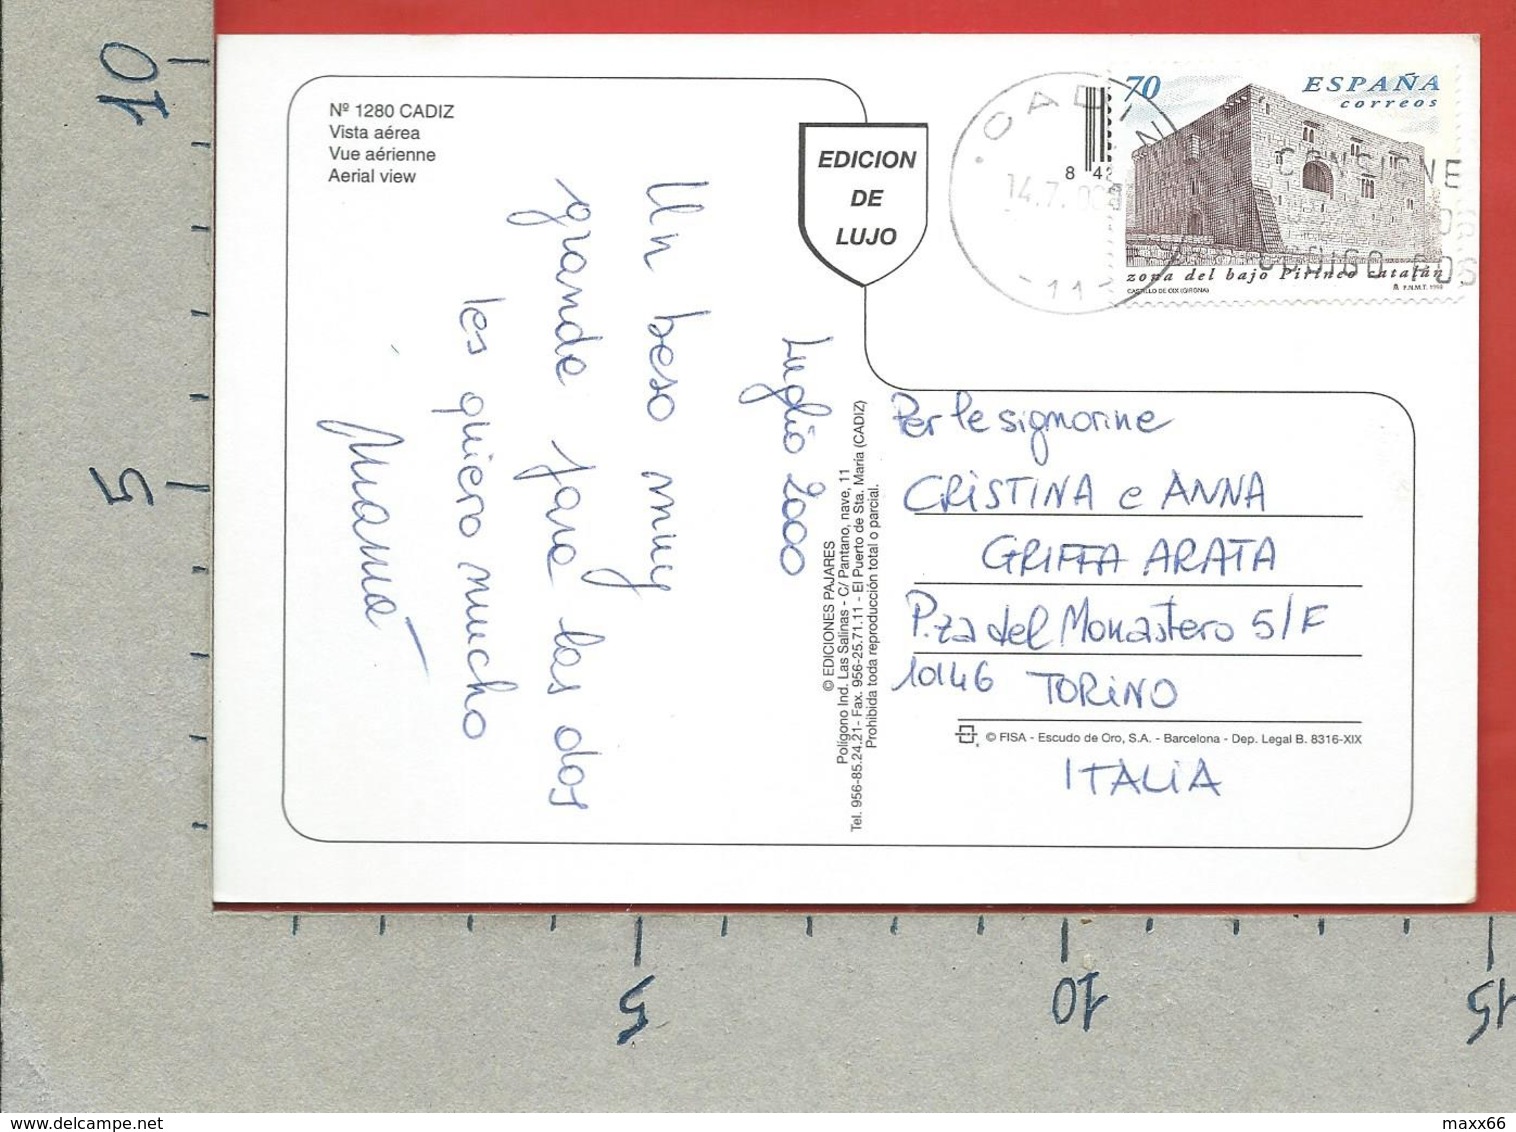 Nº 1280 CADIZ
Vista aérea
Vue aérienne
Aerial view
EDICION
DE
LUJO
70 ESPAÑA
correos
zona del bajo Pirineo catalán
CASTILLO DE OIX (GIRONA)
F.N.M.T. 1998
CADIZ
14.7.00
-11-
CONSIGNE
CODIGO POS
8 42
Luglio 2000
Un beso muy
grande para las dos
les quiero mucho
Mamá
© EDICIONES PAJARES
Polígono Ind. Las Salinas - C/ Pantano, nave, 11
Tel. 956-85.24.21- Fax. 956-25.71.11 - El Puerto de Sta. María (CADIZ)
Prohibida toda reproducción total o parcial.
Per le signorine
CRISTINA e ANNA
GRIFFA ARATA
P.za del Monastero 5/F
10146 TORINO
© FISA - Escudo de Oro, S.A. - Barcelona - Dep. Legal B. 8316-XIX
ITALIA
10
5
5
10
15
maxx66